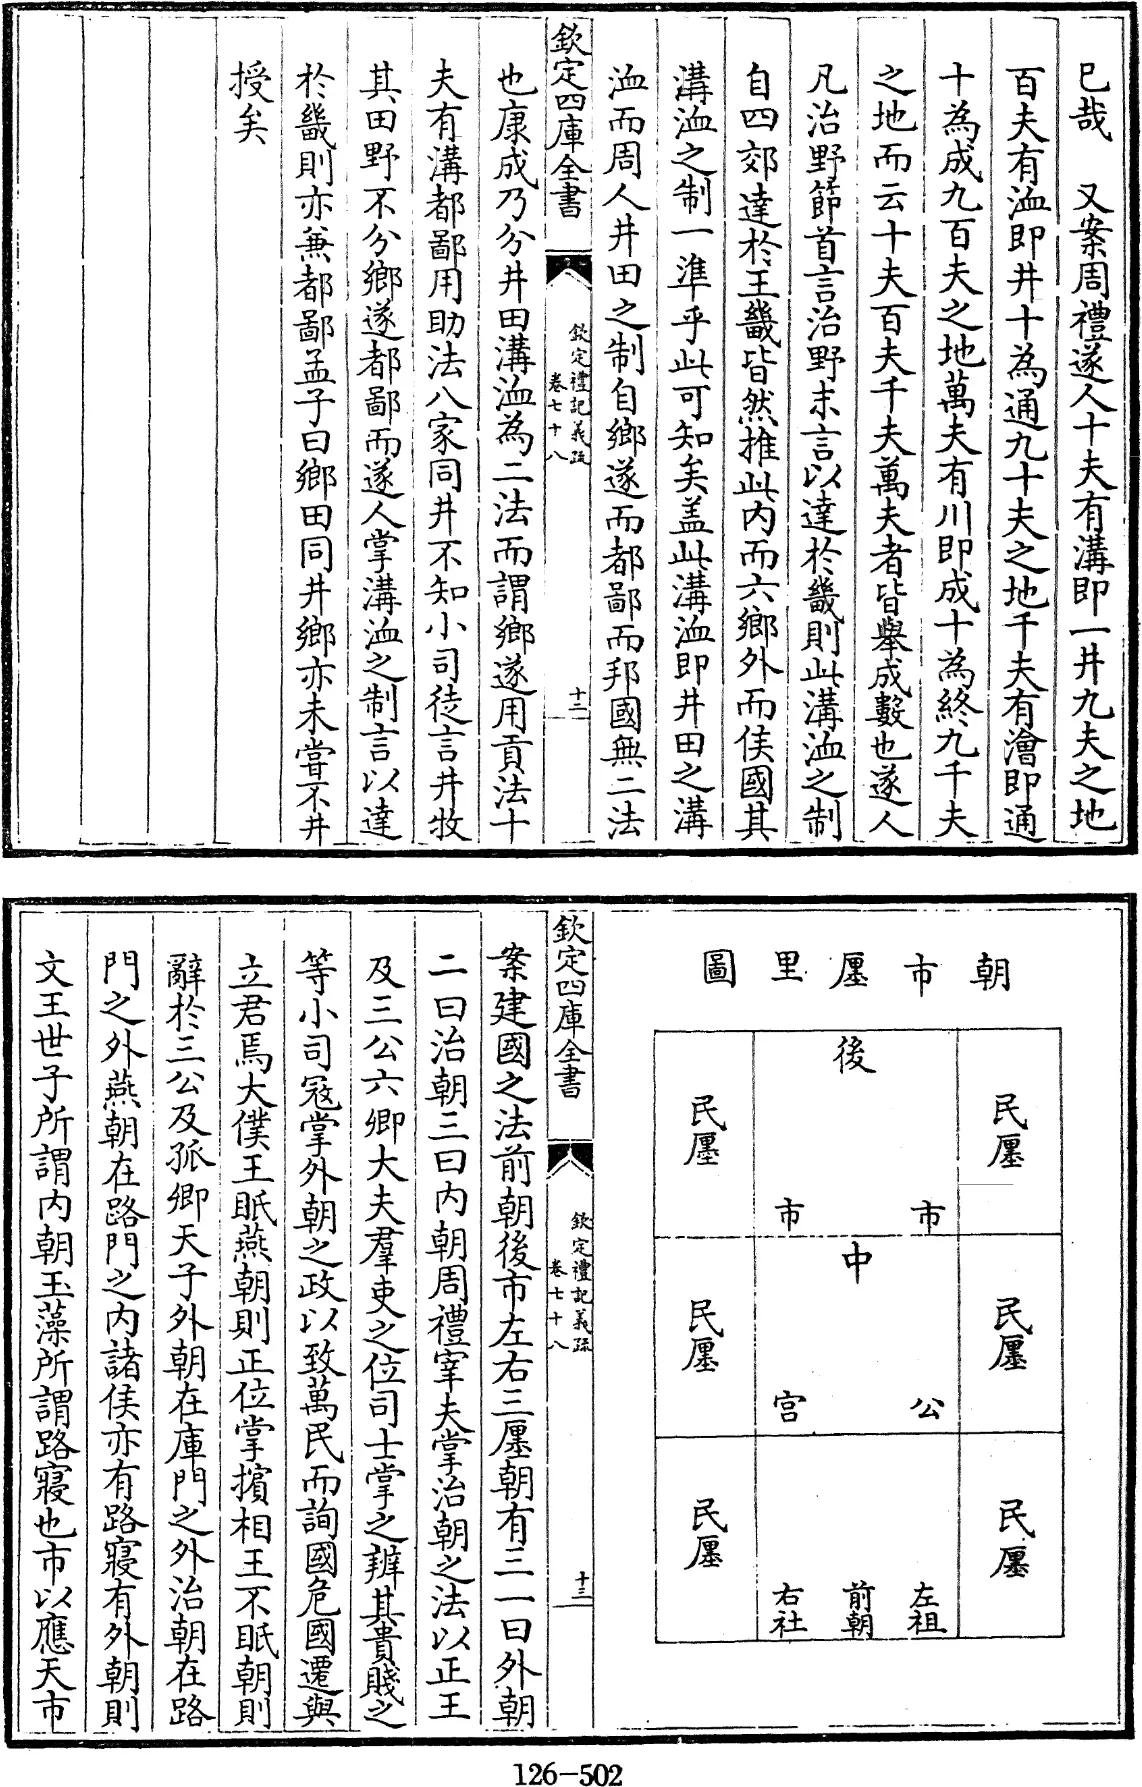 已哉　又案周禮遂人十夫有溝即一井九夫之地
百夫有洫即井十為通九十夫之地千夫有澮即通
十為成九百夫之地萬夫有川即成十為終九千夫
之地而云十夫百夫千夫萬夫者皆舉成數也遂人
凡治野節首言治野末言以達於畿則此溝洫之制
自四郊達於王畿皆然推此内而六鄉外而侯國其
溝洫之制一準乎此可知矣盖此溝洫即井田之溝
洫而周人井田之制自鄉遂而都鄙而邦國無二法
欽定四庫全書
欽定禮記義疏
卷七十八
十二
也康成乃分井田溝洫為二法而謂鄉遂用貢法十
夫有溝都鄙用助法八家同井不知小司徒言井牧
其田野不分鄉遂都鄙而遂人掌溝洫之制言以達
於畿則亦兼都鄙孟子曰鄉田同井鄉亦未嘗不井
授矣
朝市廛里圖
民廛
後
市
市
民廛
民廛
中
公
宮
民廛
民廛
左祖
前朝
右社
民廛
欽定四庫全書
欽定禮記義疏
卷七十八
十三
案建國之法前朝後市左右三廛朝有三一曰外朝
二曰治朝三曰内朝周禮宰夫掌治朝之法以正王
及三公六卿大夫羣吏之位司士掌之辨其貴賤之
等小司寇掌外朝之政以致萬民而詢國危國遷與
立君焉大僕王眂燕朝則正位掌擯相王不眂朝則
辭於三公及孤卿天子外朝在庫門之外治朝在路
門之外燕朝在路門之内諸侯亦有路寢有外朝則
文王世子所謂内朝玉藻所謂路寢也市以應天市
126-502